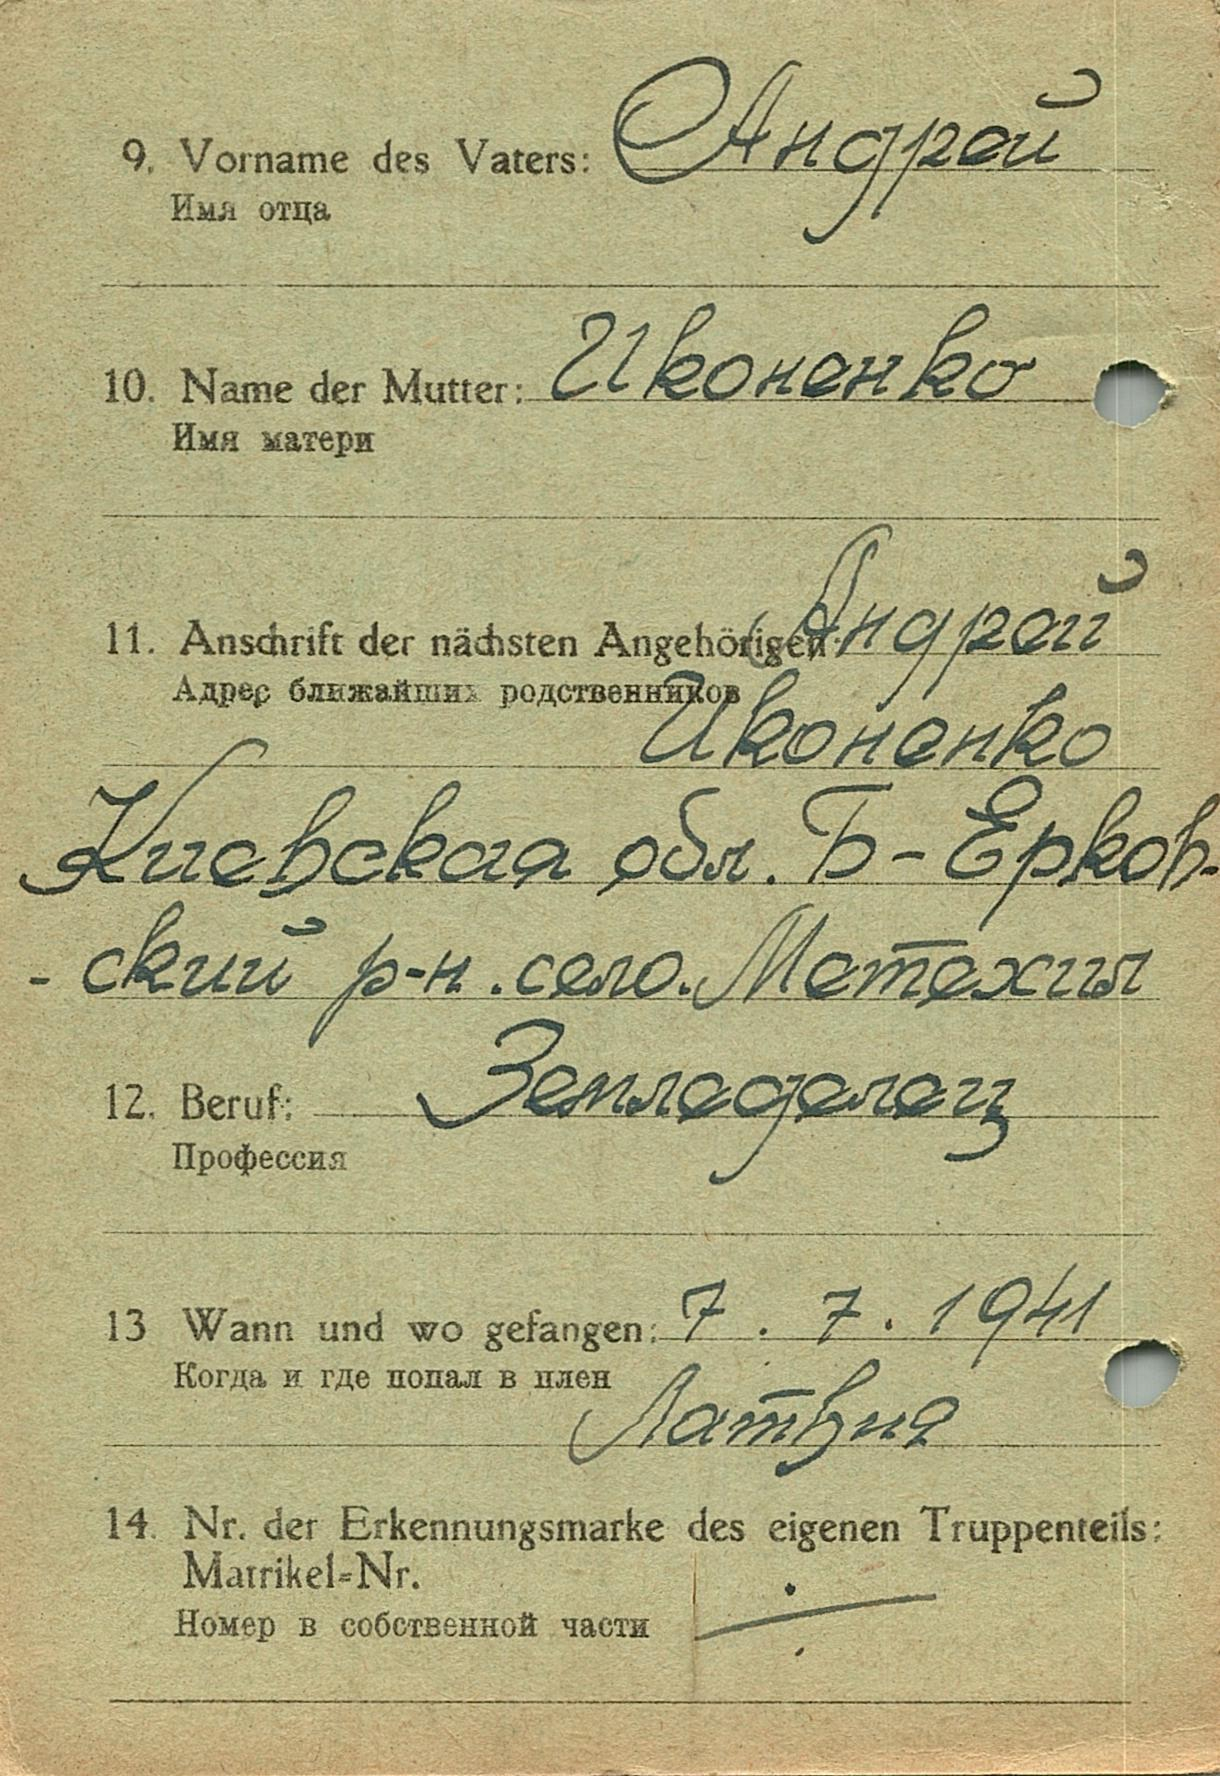 9. Vorname des Vaters: Андрей
Имя отца
10. Name der Mutter: Иконенко
Имя матери
11. Anschrift der nächsten Angehörigen: Андрей
Адрес ближайших родственников
Иконенко
Киевская обл. Б-Ерков-
-ский р-н. село.
12. Beruf: Земледелец
Профессия
13 Wann und wo gefangen: 7. 7. 1941
Когда и где попал в плен
Латвия
14. Nr. der Erkennungsmarke des eigenen Truppenteils:
Matrikel-Nr.
Номер в собственной части